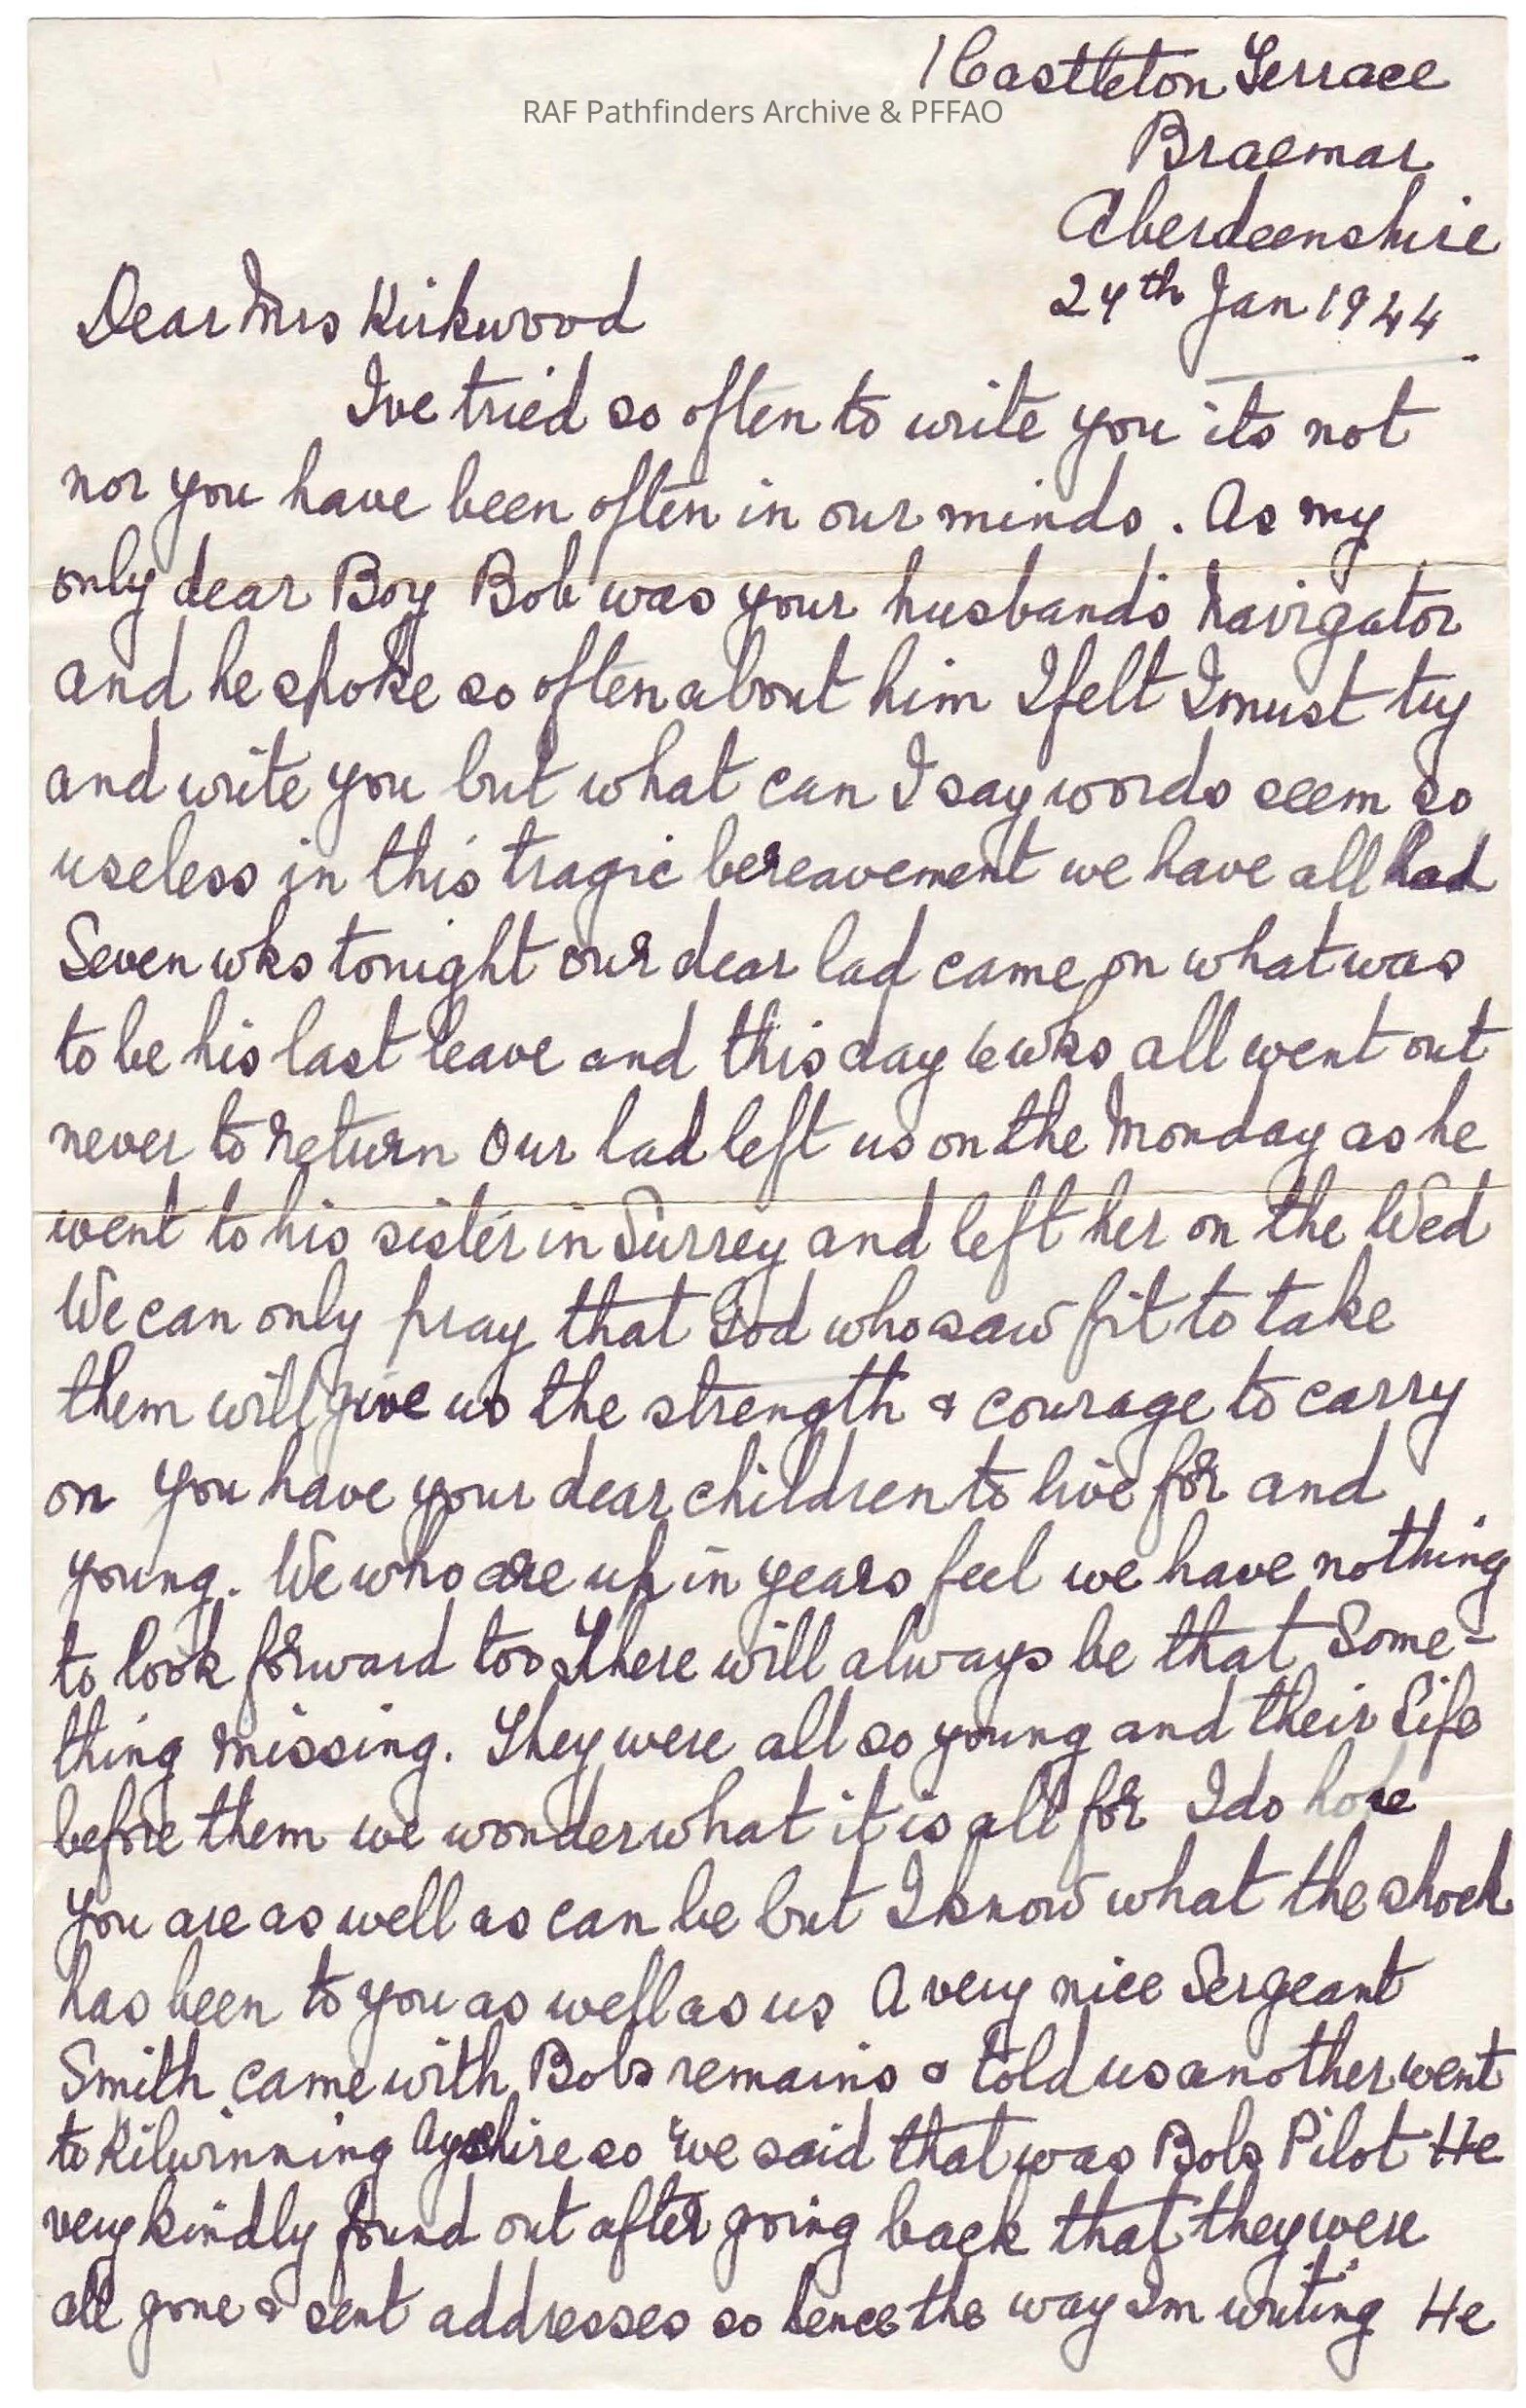 1 Castleton Terrace
RAF Pathfinders Archive & PFFAO
Braemar
Aberdeenshire
24th Jan 1944
Dear Mrs Kirkwood
Ive tried so often to write you its not
nor you have been often in our minds. As my
only dear Boy Bob was your husbands Navigator
and he spoke so often about him I felt I must try
and write you but what can I say words seem so
useless in this tragic bereavement we have all had
Seven wks tonight our dear lad came on what was
to be his last leave and this day 6 wks all went out
never to return Our lad left us on the Monday as he
went to his sister in Surrey and left her on the Wed
We can only pray that God who saw fit to take
them will give us the strength & courage to carry
on you have your dear children to live for and
young. We who are up in years feel we have nothing
to look forward too There will always be that Some-
thing missing. They were all so young and their Life
before them we wonder what it is all for I do hope
you are as well as can be but I know what the shock
has been to you as well as us A very nice Sergeant
Smith came with Bobs remains & told us another went
to Kilwinning Ayrshire so we said that was Bobs Pilot He
very kindly found out after going back that they were
all gone & sent addresses so hence the way Im writing He